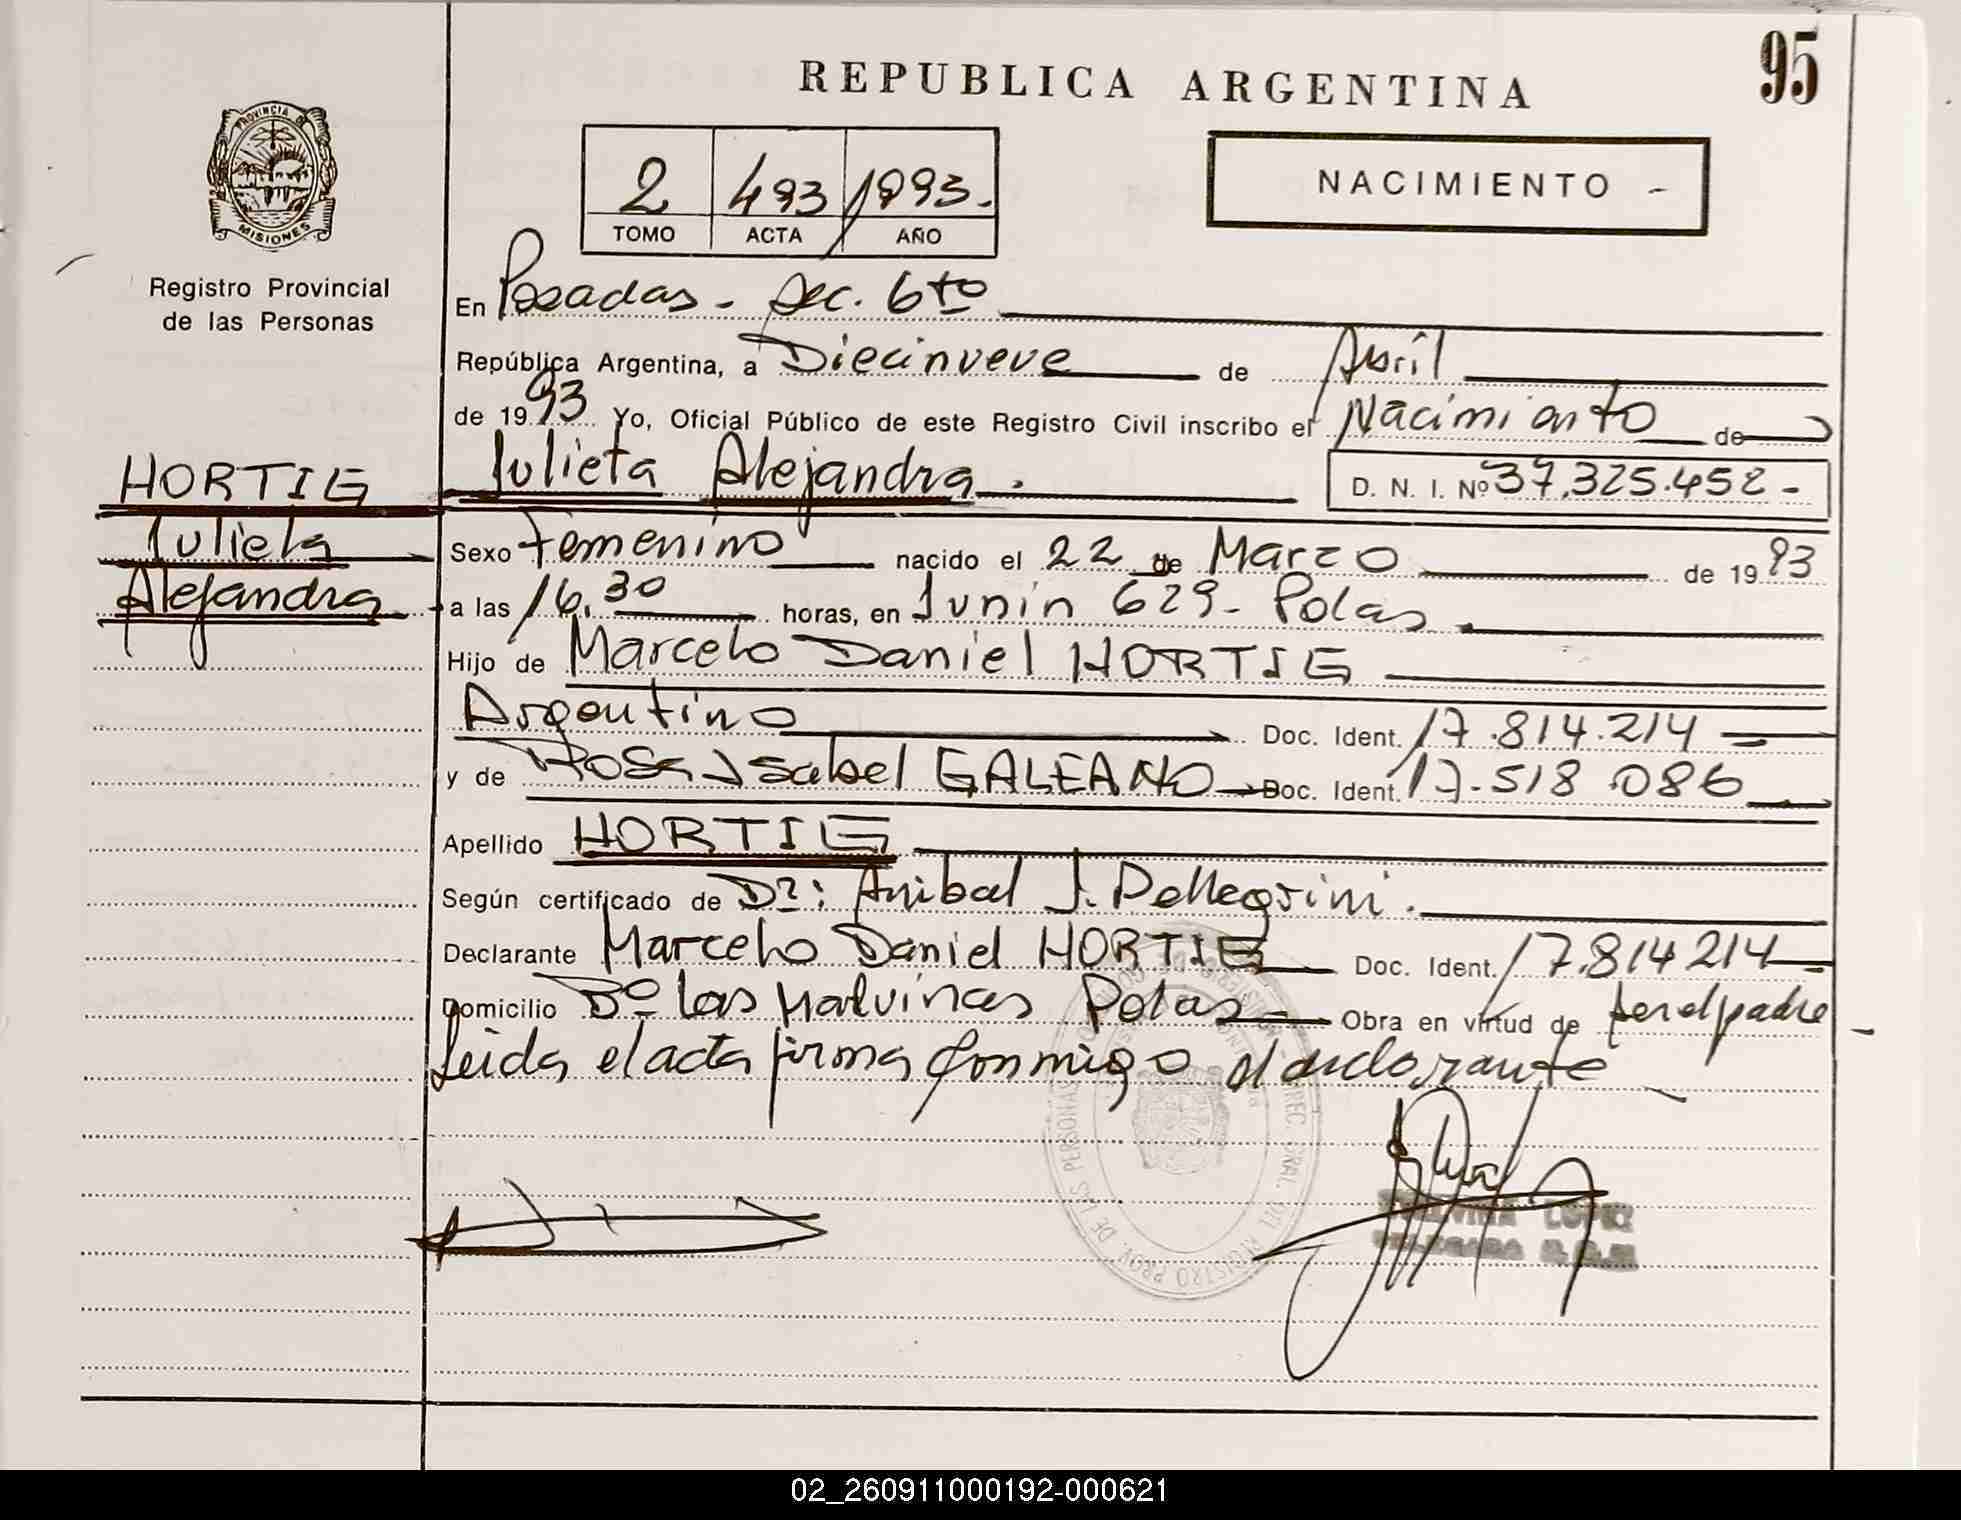 95
REPUBLICA ARGENTINA
PROVINCIA DE
MISIONES
Registro Provincial
de las Personas
NACIMIENTO -
2 493 1993.
TOMO ACTA AÑO
En Posadas - Sec. 6to
República Argentina, a Diecinueve de Abril
de 1993 Yo, Oficial Público de este Registro Civil inscribo el Nacimiento de
Julieta Alejandra.
D. N. I. Nº 37.325.452 -
HORTIG
Julieta
Alejandra
Sexo Femenino nacido el 22 de Marzo de 1993
a las 16.30 horas, en Junin 629 - Pdas.
Hijo de Marcelo Daniel HORTIG
Argentino Doc. Ident. 17.814.214
y de Rosa Isabel GALEANO Doc. Ident. 17.518.086
Apellido HORTIG
Según certificado de Dr: Anibal J. Pellegrini.
Declarante Marcelo Daniel HORTIG Doc. Ident. 17.814214
Domicilio Bº las Malvinas Pdas Obra en virtud de ser el padre
Leida el acta firma conmigo el declarante
LOPEZ
02_260911000192-000621